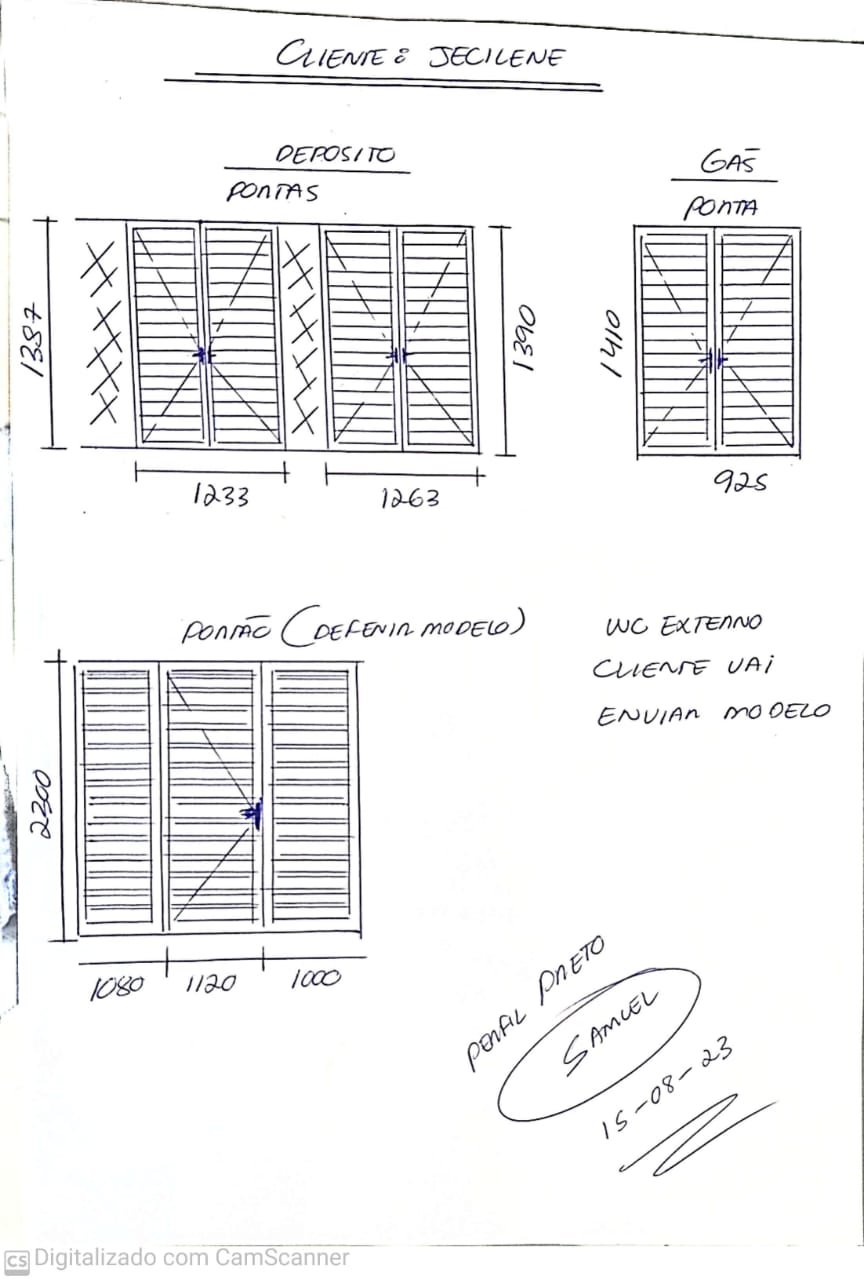 CLIENTE: JECILENE
DEPOSITO
PORTAS
GÁS
PORTA
1387
1390
1410
1233
1263
925
PORTÃO (DEFENIR MODELO)
WC EXTERNO
CLIENTE VAI
ENVIAR MODELO
2300
1080
1120
1000
PERFIL PRETO
SAMUEL
15-08-23
CS Digitalizado com CamScanner